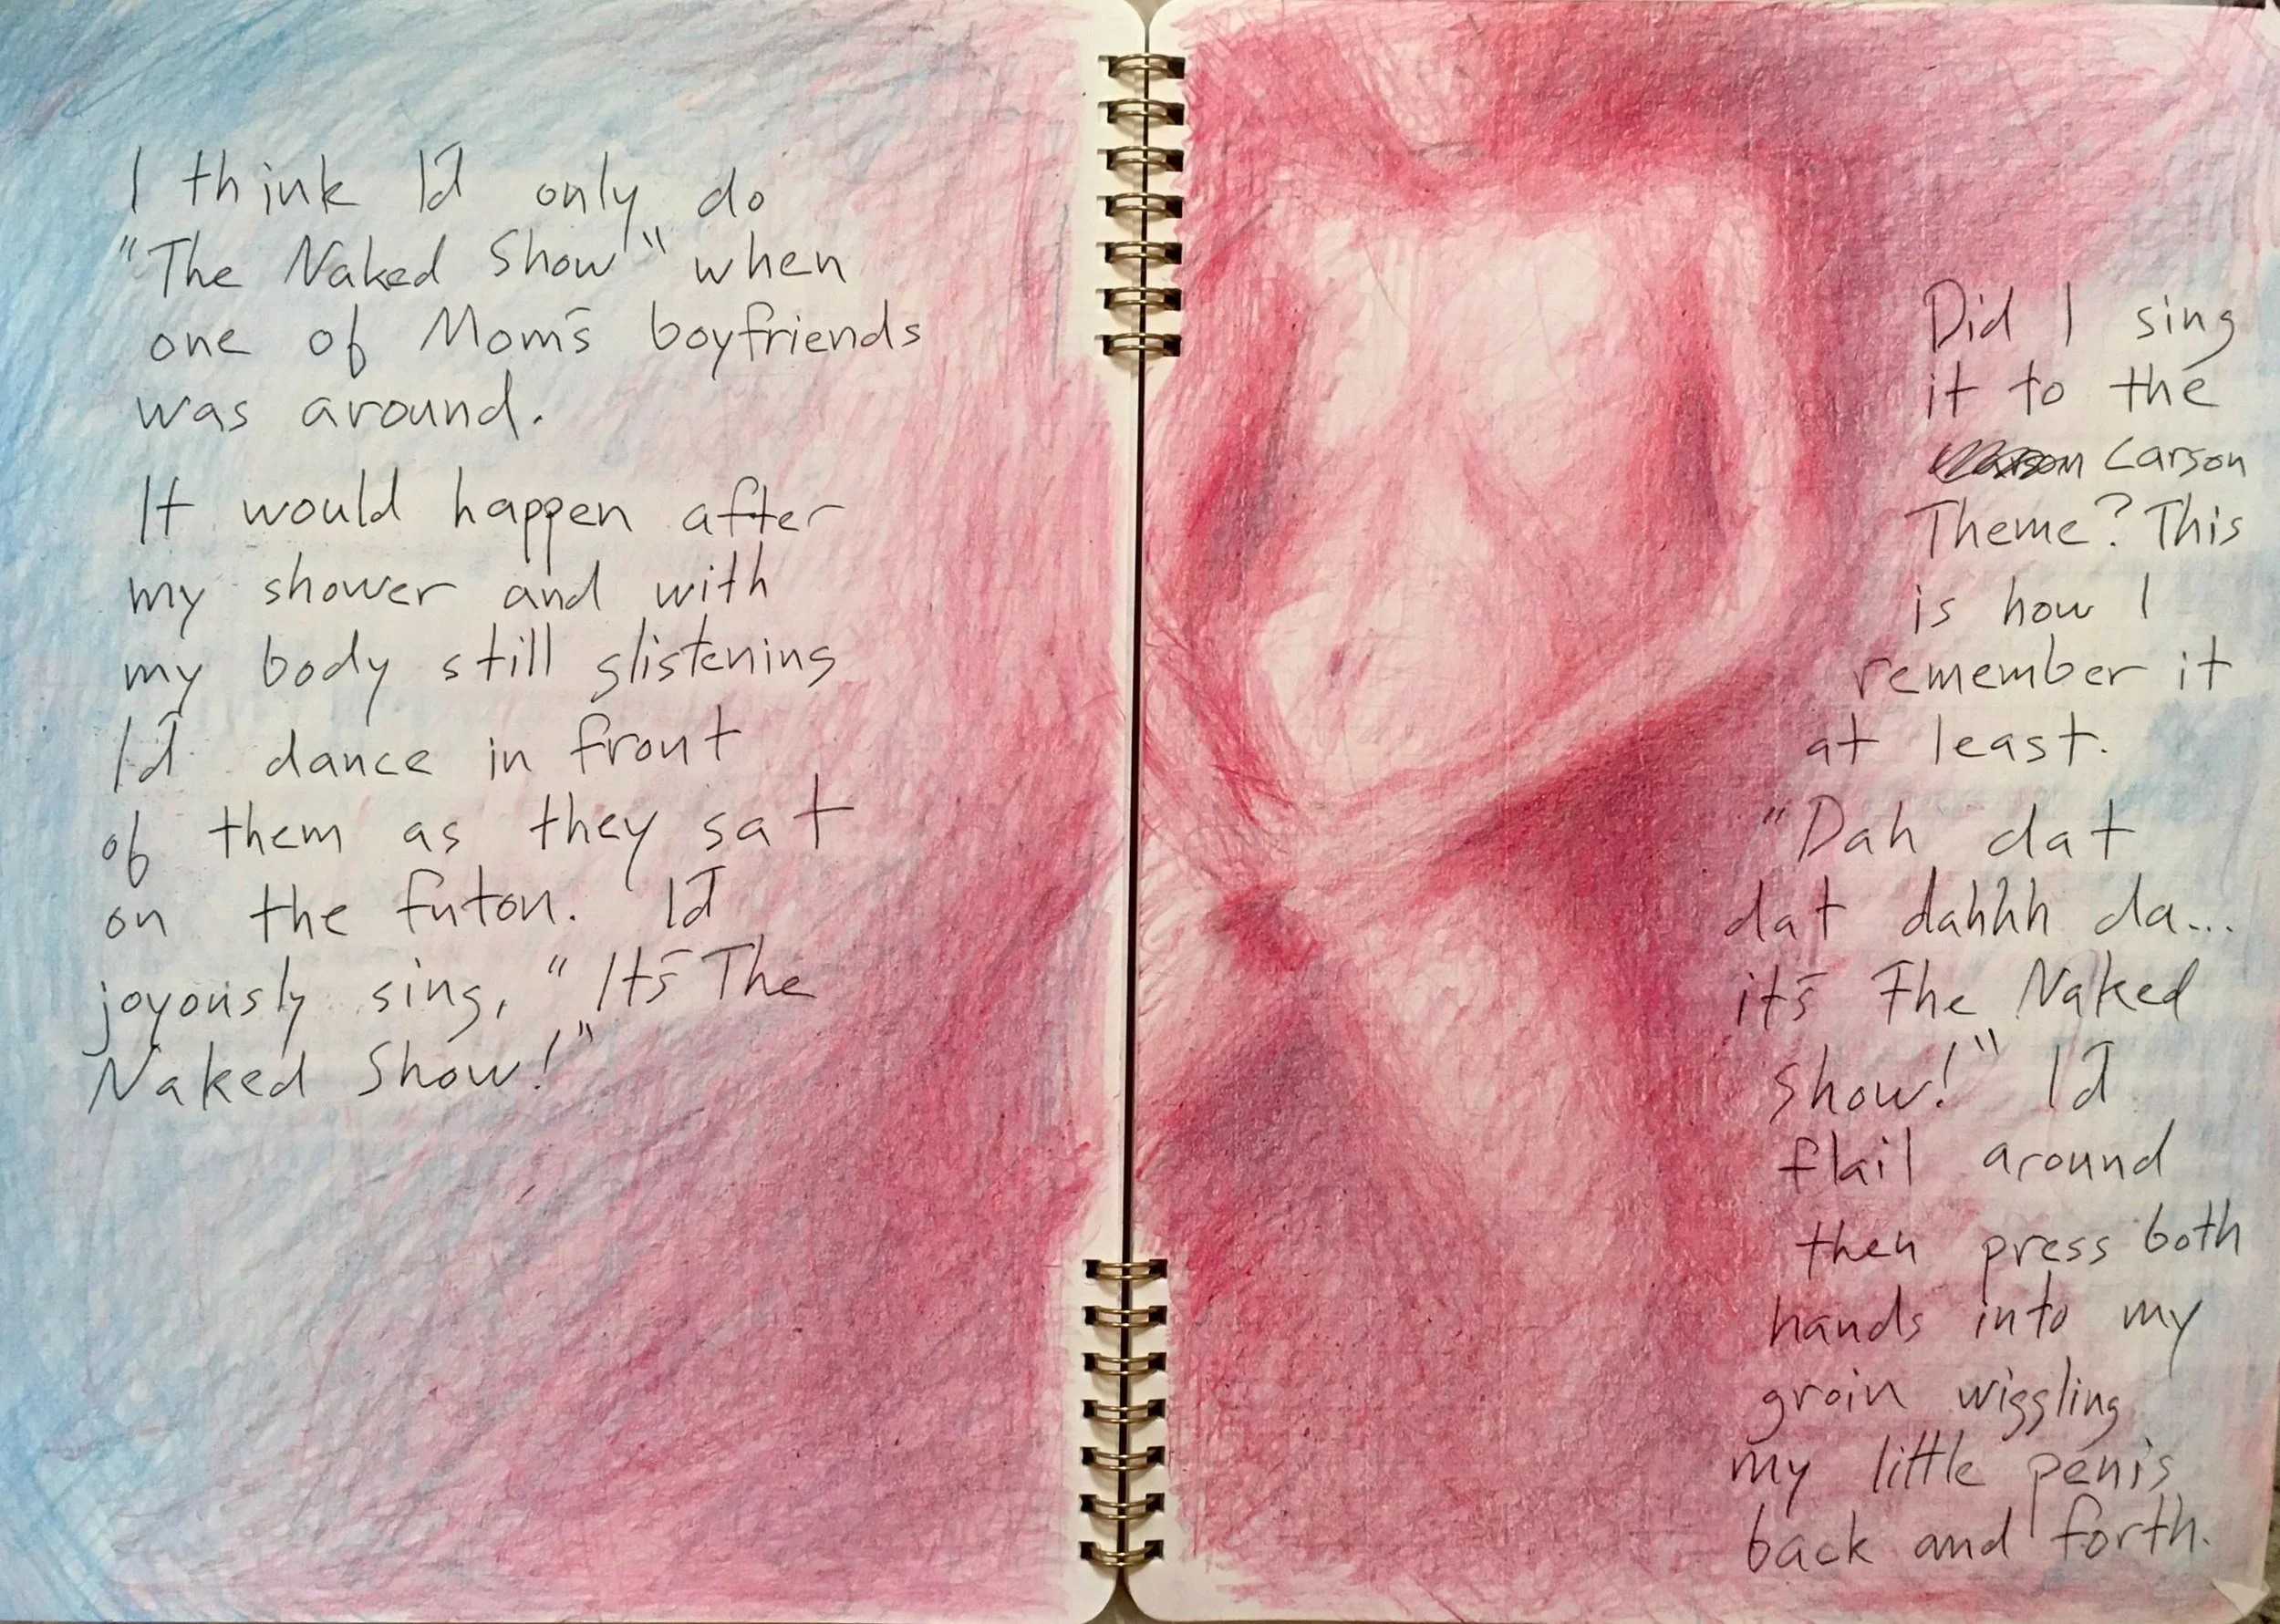 I think I'd only do
"The Naked Show" when
one of Mom's boyfriends
was around.
It would happen after
my shower and with
my body still glistening
I'd dance in front
of them as they sat
on the futon. I'd
joyously sing, "It's The
Naked Show!"
Did I sing
it to the
Carson
Theme? This
is how I
remember it
at least.
"Dah dat
dat dahhh da...
it's The Naked
Show!" I'd
flail around
then press both
hands into my
groin wiggling
my little penis
back and forth.